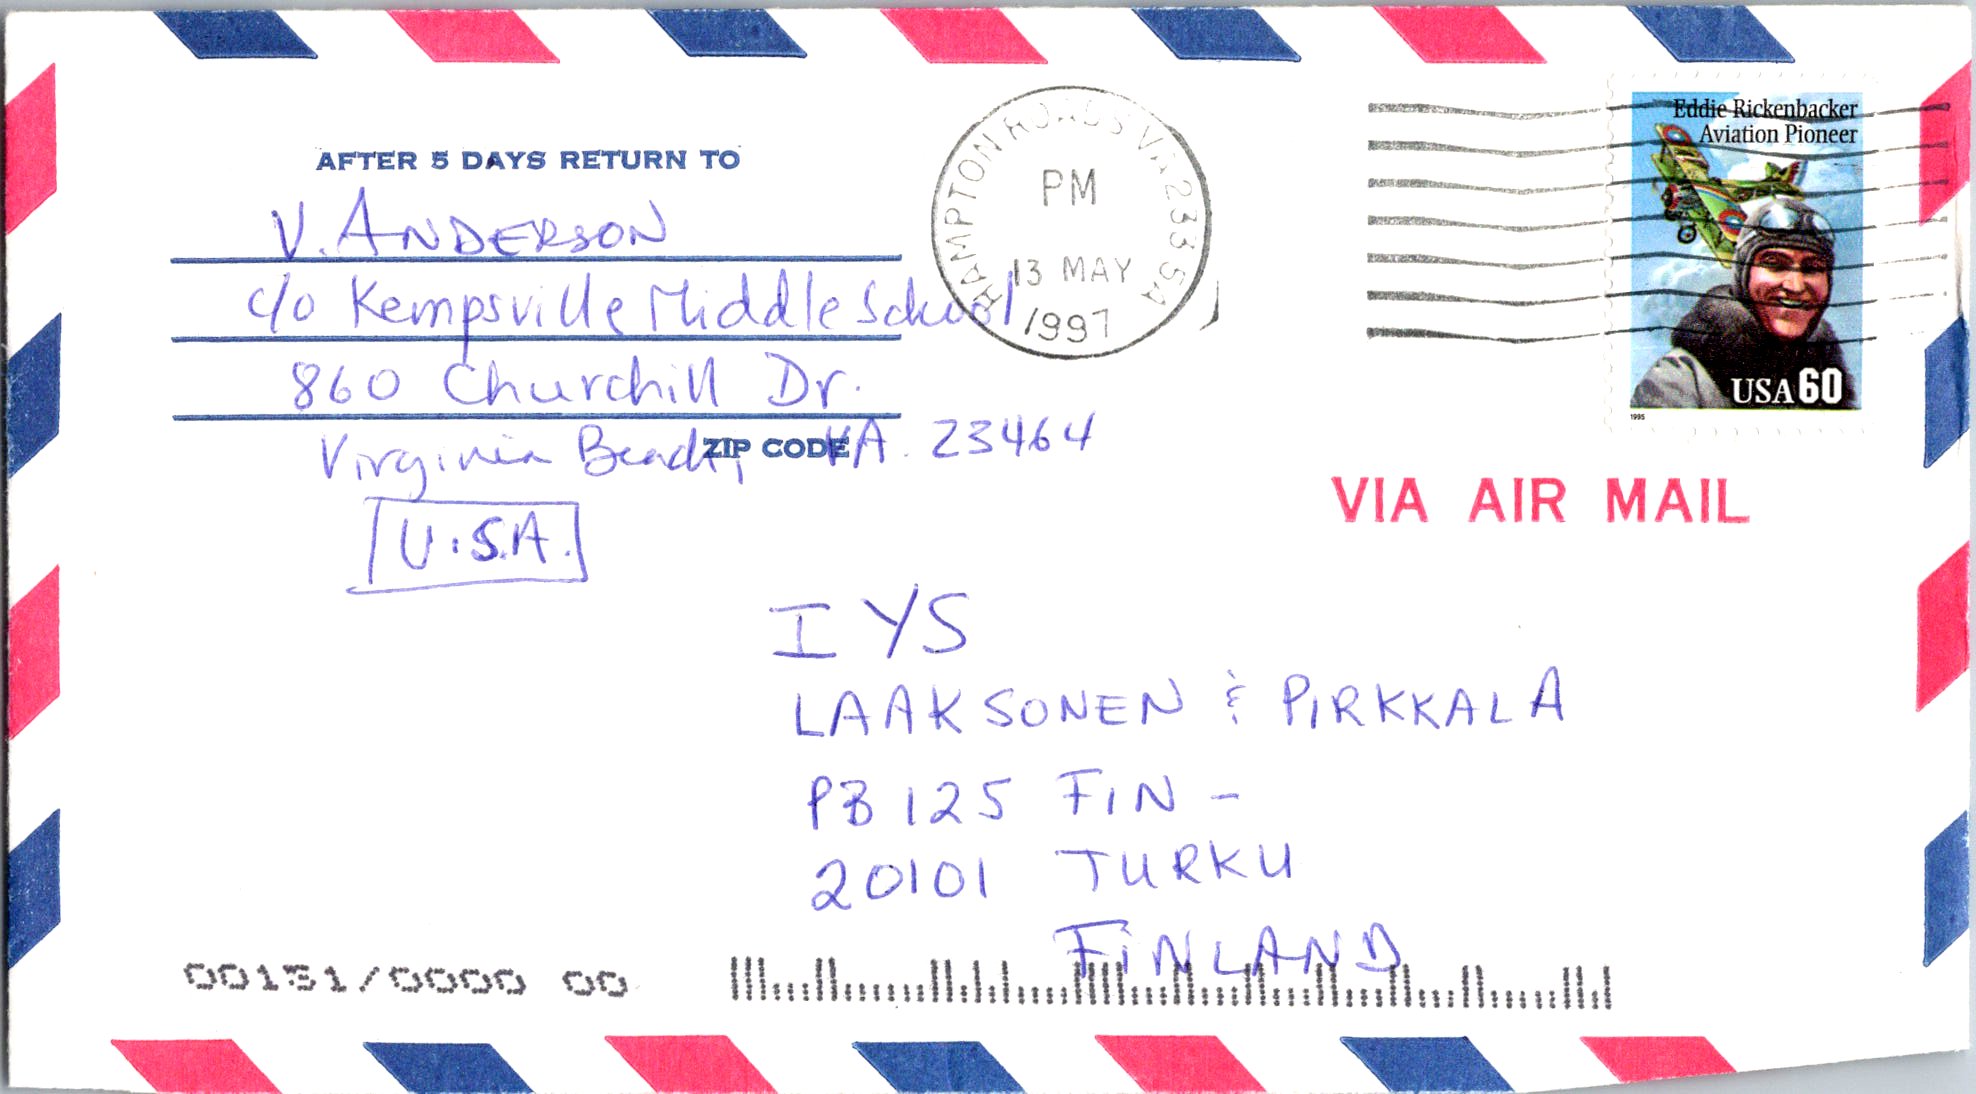 AFTER 5 DAYS RETURN TO
V. ANDERSON
c/o Kempsville Middle School
860 Churchill Dr.
Virginia Beach, VA. 23464
ZIP CODE
U.S.A.
HAMPTON ROADS VA 233 5A
PM
13 MAY
1997
Eddie Rickenbacker
Aviation Pioneer
USA 60
1995
VIA AIR MAIL
IYS
LAAKSONEN & PIRKKALA
PB 125 FIN -
20101 TURKU
FINLAND
00131/0000 00